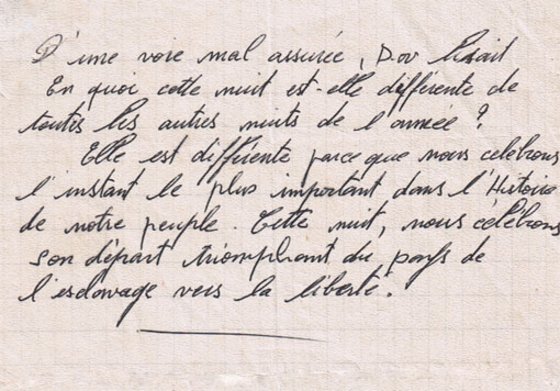 D'une voie mal assurée, Dov lisait
En quoi cette nuit est-elle différente de
toutes les autres nuits de l'année ?
Elle est différente parce que nous celebrons
l'instant le plus important dans l'Histoire
de notre peuple. Cette nuit, nous célébrons
son départ triomphant du pays de
l'esclavage vers la liberté.